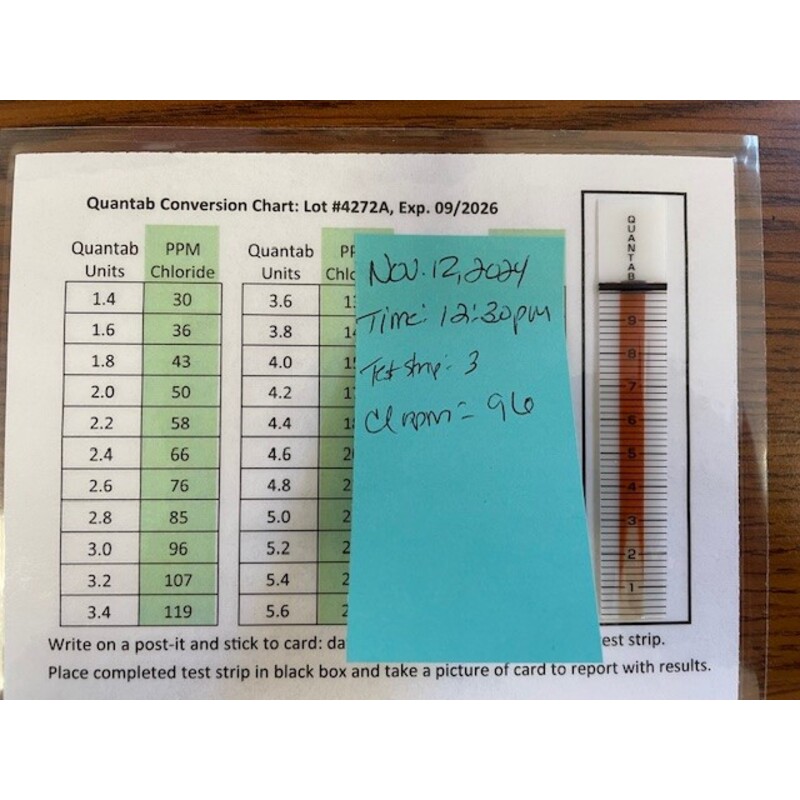 Quantab Conversion Chart: Lot #4272A, Exp. 09/2026
Quantab Units PPM Chloride Quantab Units
1.4 30 3.6
1.6 36 3.8
1.8 43 4.0
2.0 50 4.2
2.2 58 4.4
2.4 66 4.6
2.6 76 4.8
2.8 85 5.0
3.0 96 5.2
3.2 107 5.4
3.4 119 5.6
Nov. 12, 2024
Time: 12:30pm
Test strip: 3
Cl ppm = 96
QUANTAB
9
8
7
6
5
4
3
2
1
Write on a post-it and stick to card: est strip.
Place completed test strip in black box and take a picture of card to report with results.